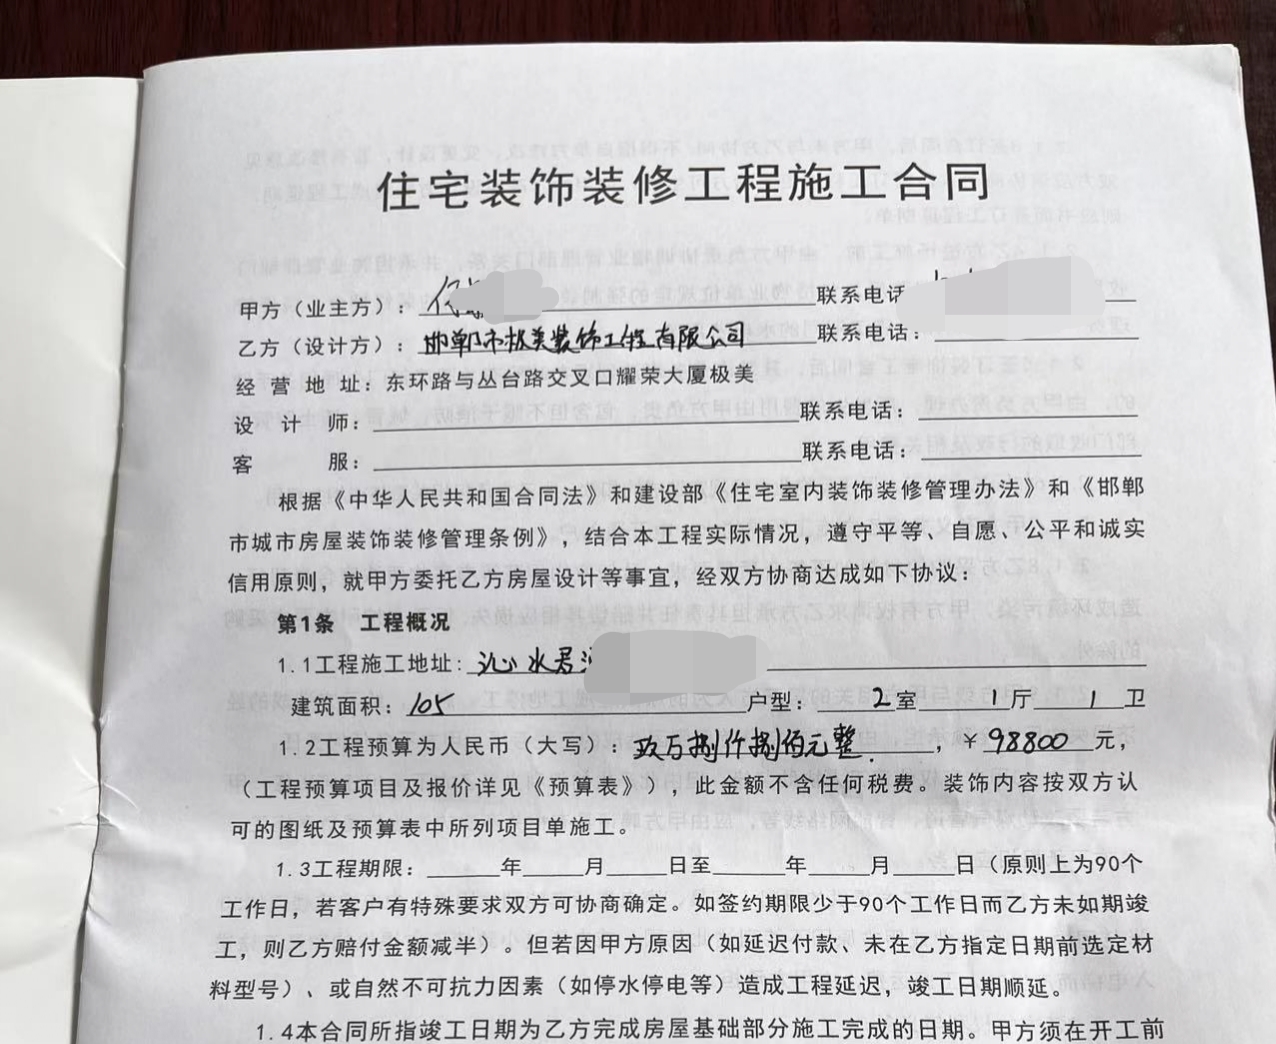 住宅装饰装修工程施工合同
甲方（业主方）： 联系电话
乙方（设计方）：邯郸市极美装饰工程有限公司 联系电话：
经营地址：东环路与丛台路交叉口耀荣大厦极美
设计师： 联系电话：
客服： 联系电话：
根据《中华人民共和国合同法》和建设部《住宅室内装饰装修管理办法》和《邯郸
市城市房屋装饰装修管理条例》，结合本工程实际情况，遵守平等、自愿、公平和诚实
信用原则，就甲方委托乙方房屋设计等事宜，经双方协商达成如下协议：
第1条 工程概况
1.1工程施工地址：沁水君
建筑面积：105 户型：2室1厅1卫
1.2工程预算为人民币（大写）：玖万捌仟捌佰元整，￥98800元，
（工程预算项目及报价详见《预算表》），此金额不含任何税费。装饰内容按双方认
可的图纸及预算表中所列项目单施工。
1.3工程期限：____年____月____日至____年____月____日（原则上为90个
工作日，若客户有特殊要求双方可协商确定。如签约期限少于90个工作日而乙方未如期竣
工，则乙方赔付金额减半）。但若因甲方原因（如延迟付款、未在乙方指定日期前选定材
料型号）、或自然不可抗力因素（如停水停电等）造成工程延迟，竣工日期顺延。
1.4本合同所指竣工日期为乙方完成房屋基础部分施工完成的日期。甲方须在开工前